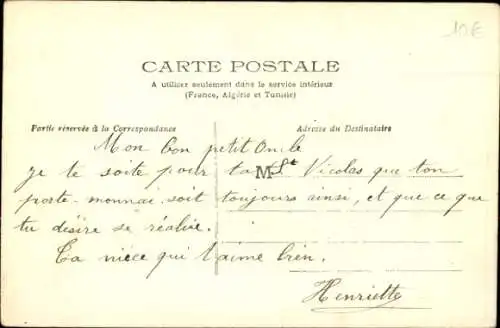 10€
CARTE POSTALE
A utiliser seulement dans le service intérieur
(France, Algérie et Tunisie)
Partie réservée à la Correspondance
Adresse du Destinataire
Mon bon petit Oncle
je te soite pour ta St Nicolas que ton
M
porte-monnai soit toujours ainsi, et que ce que
tu désire se réalise.
Ta nièce qui t'aime bien.
Henriette